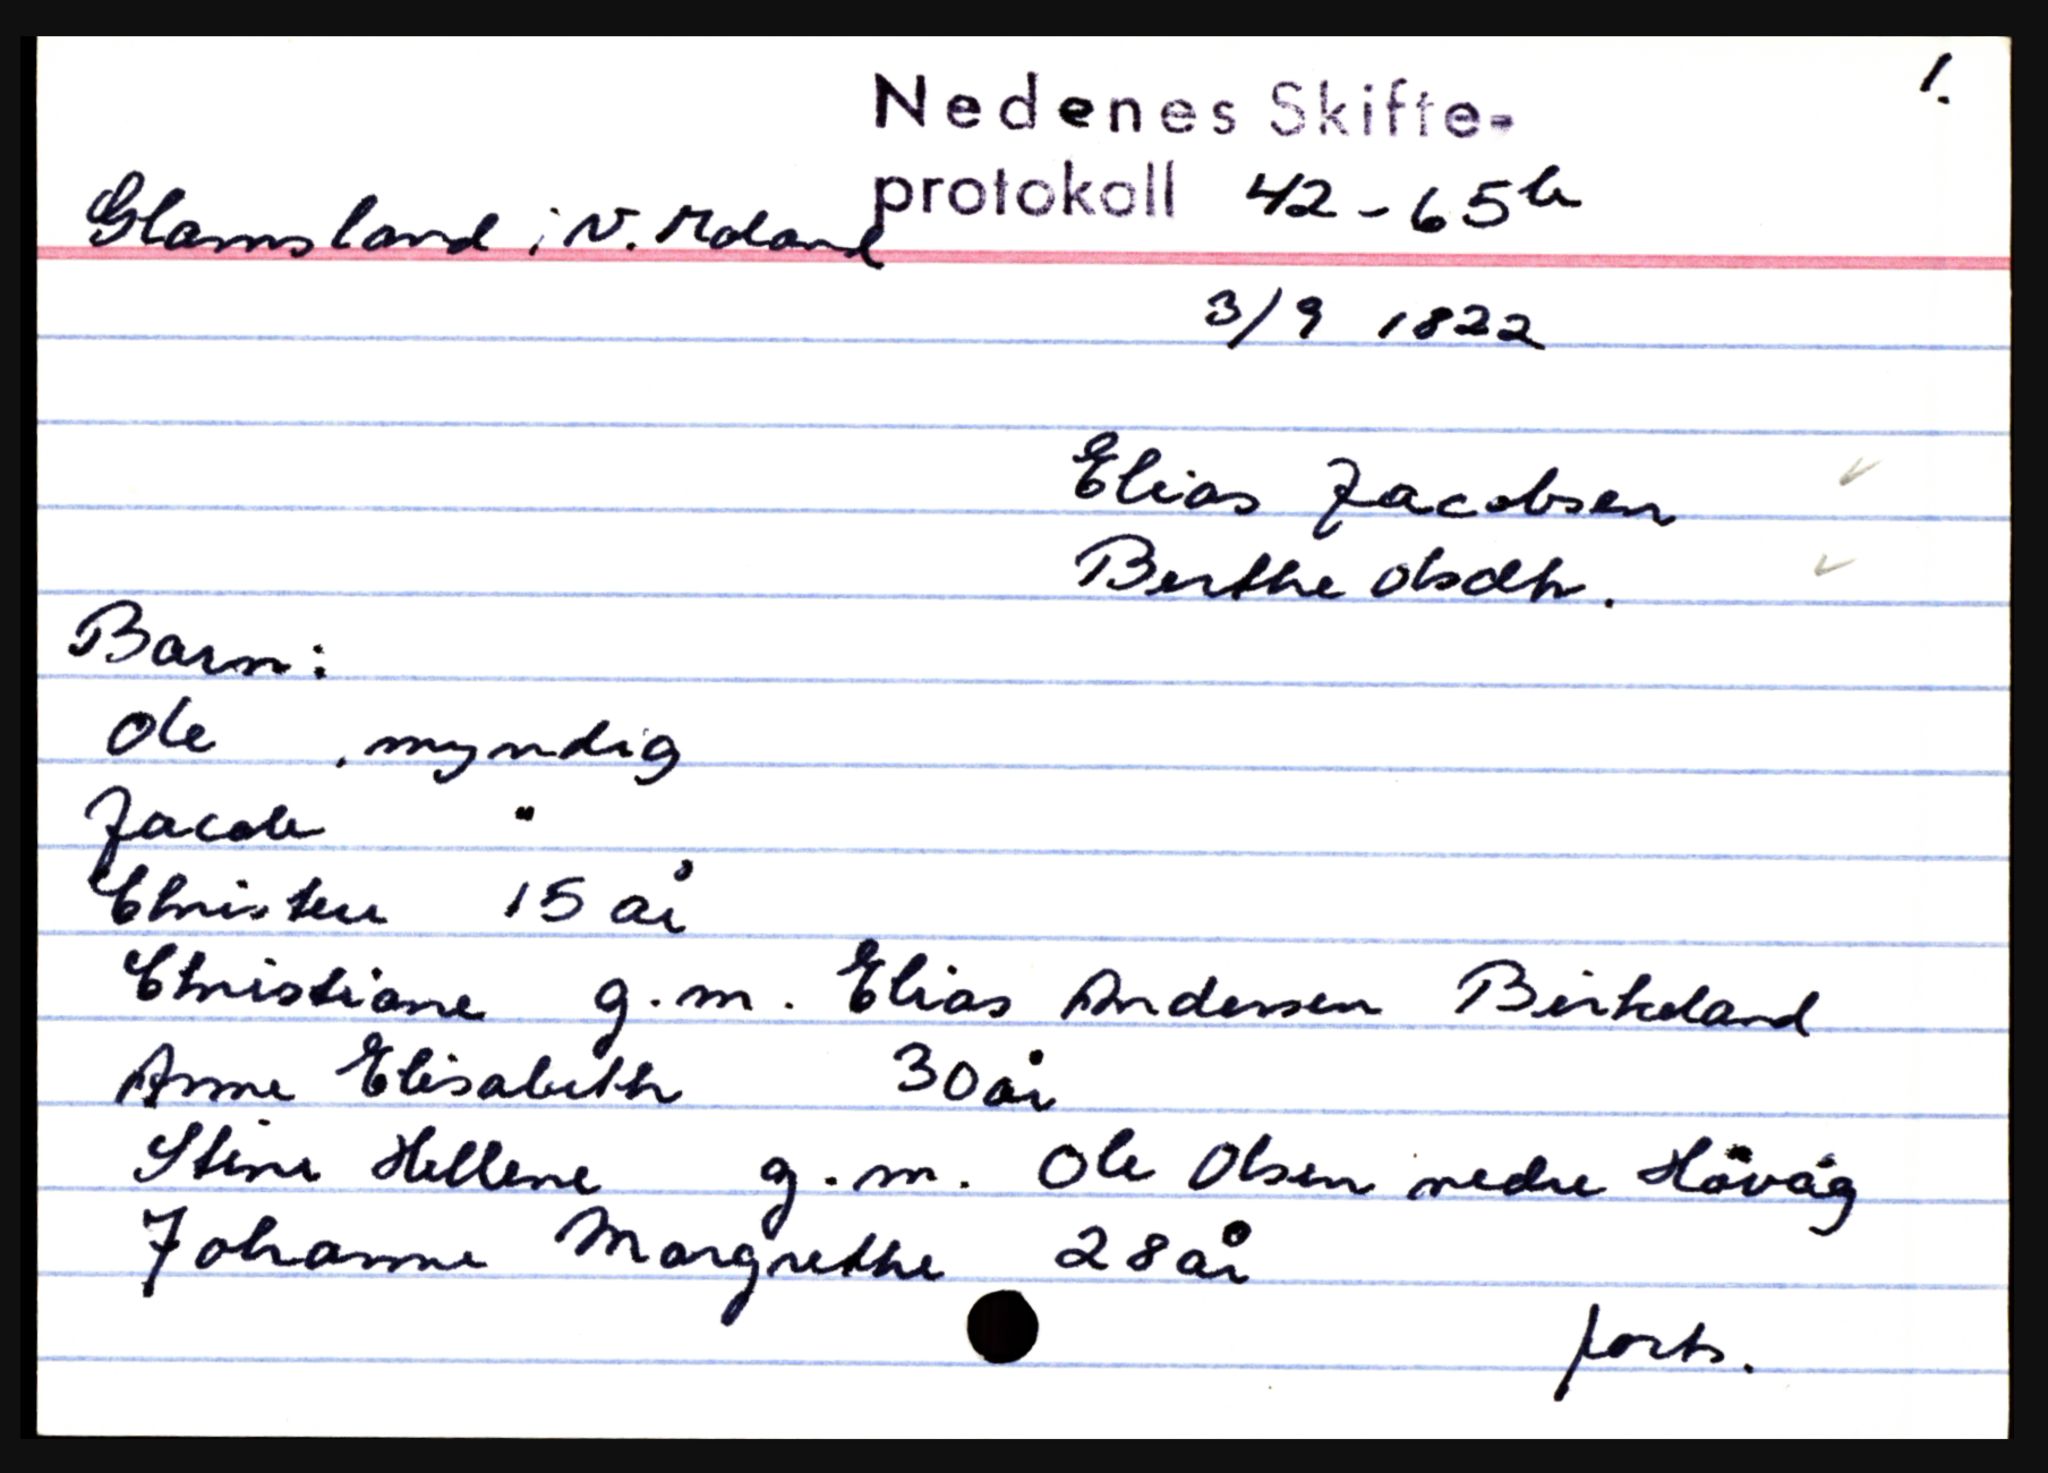 1.
Nedenes Skifte-
protokoll 42-65b
Glamsland i V. Moland
3/9 1822
Elias Jacobsen
Berthe Olsdtr.
Barn:
Ole , myndig
Jacob "
Christen 15 år
Christiane g.m. Elias Andersen Birkeland
Anne Elisabeth 30 år
Stine Hellene g.m. Ole Olsen nedre Hövåg
Johanne Margrethe 28 år
forts.